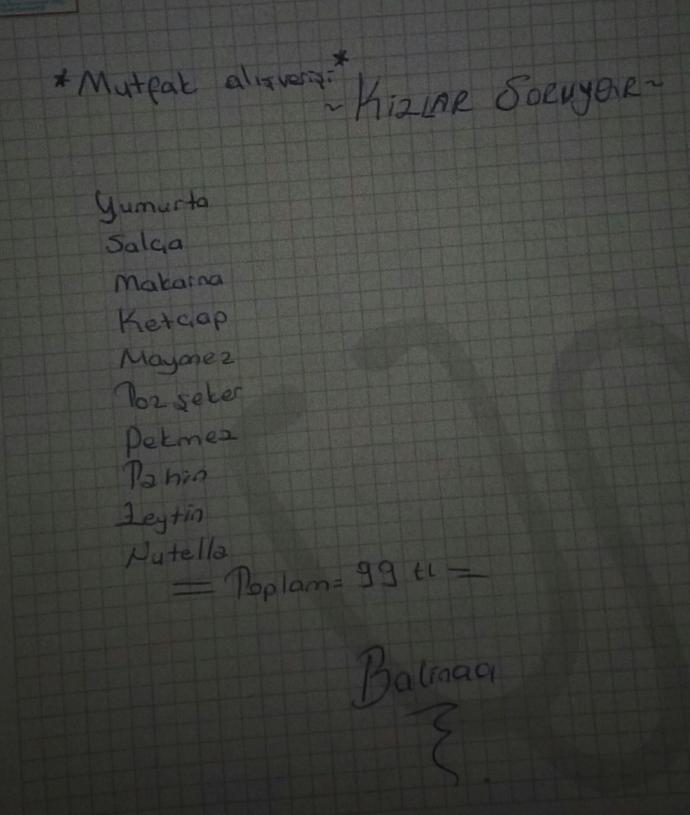 *Mutfak alışverişi*
~Kızlar Soruyor~
Yumurta
Salça
Makarna
Ketçap
Mayonez
Toz şeker
Pekmez
Tahin
Zeytin
Nutella
= Toplam= 99 tl =